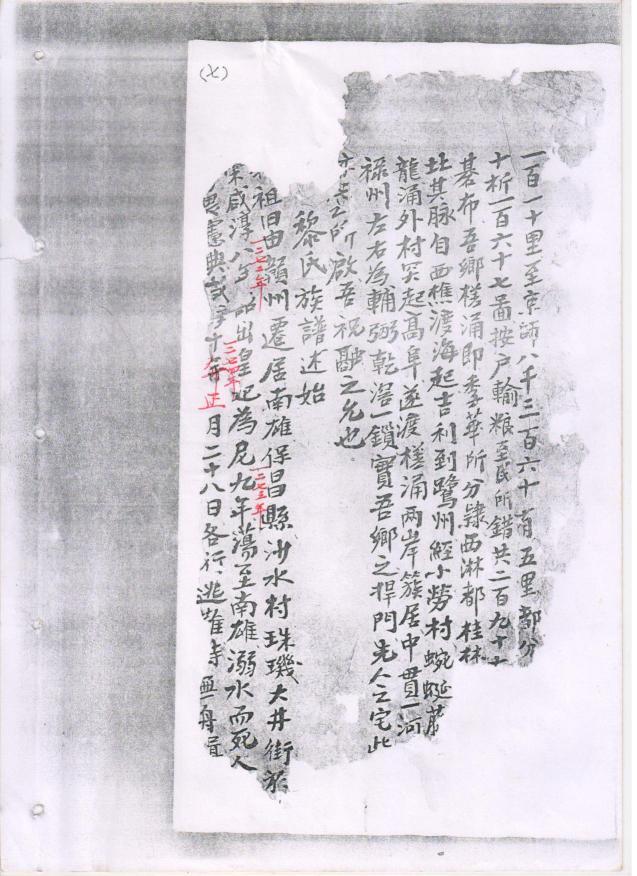 (七)
一百一十里至京師八千三百六十有五里都分
十析一百六十七啚按户輸粮至民所錯共二百九十
碁布吾鄉槎涌即季華所分隸西淋都桂林
其脉自西樵渡海起吉利到鷺州經小勞村蜿蜒
龍涌外村突起髙阜遂渡槎涌兩岸簇居中貫一河
禄州左右為輔弼乾滘一鎖實吾鄉之捍門先人之宅此
之所啟吾祝融之允也
黎氏族譜述始
祖旧由韻州遷居南雄保昌縣沙水村珠璣大井街
一二七二年
一二七三年
宋咸淳八年 出皇妃為尼九年蕩至南雄溺水而死人
一二七四年
年正
咸淳十年 月二十八日各行逃